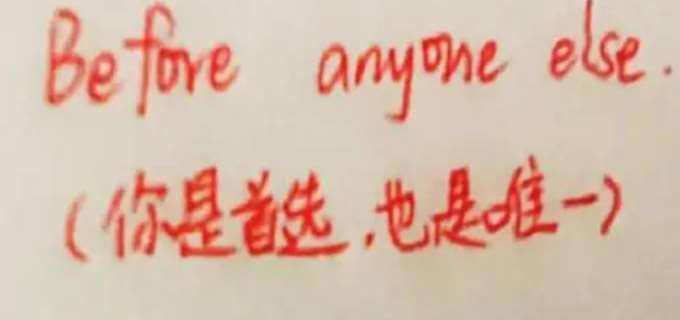 Before anyone else.
(你是首选,也是唯一)